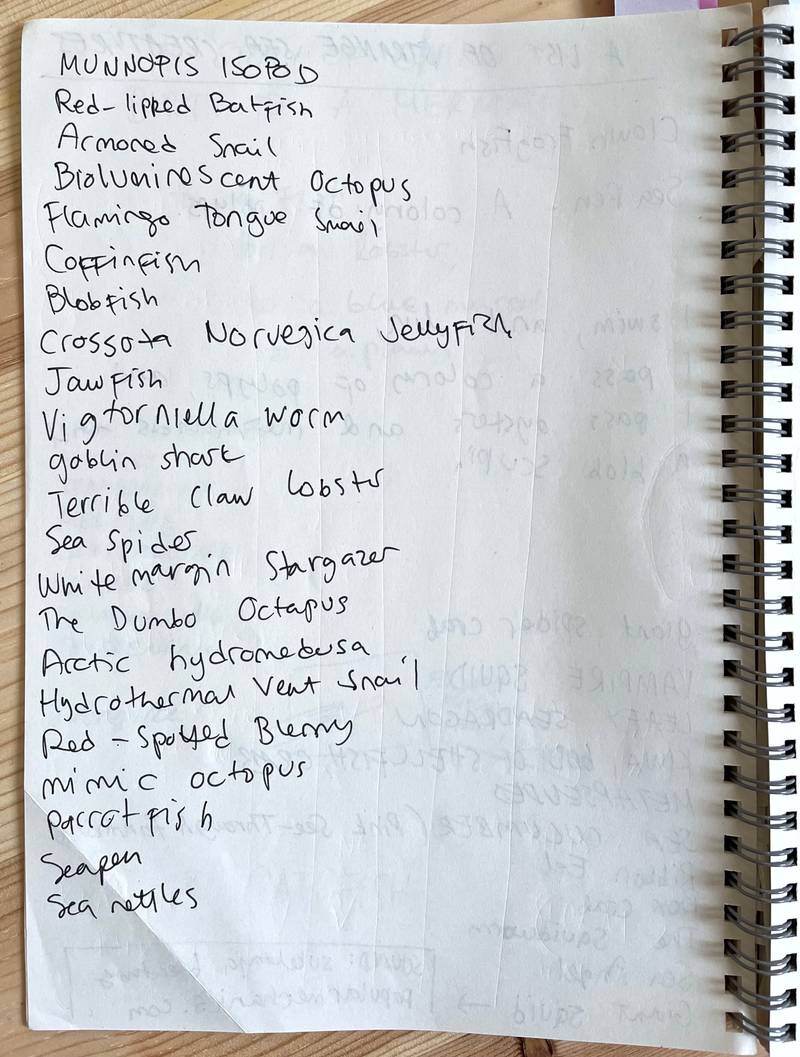 MUNNOPIS ISOPOD
Red-lipped Batfish
Armored Snail
Bioluminescent Octopus
Flamingo Tongue Snail
Coffinfish
Blobfish
Crossota Norvegica Jellyfish
Jawfish
Vigtorniella worm
goblin shark
Terrible Claw Lobster
Sea Spider
White margin Stargazer
The Dumbo Octapus
Arctic hydromedusa
Hydrothermal Vent Snail
Red-Spotted Blenny
mimic octopus
parrotfish
Seapen
Sea nettles